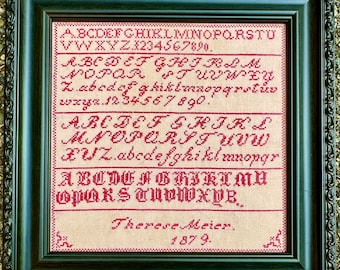 ABCDEFGHIKLMNOPQRSTU
VWXYZ.1234567890.
ABCDEFGHIKLM
NOPQRSTUVWXY
Z.abcdefghiklmnopqrstuv
wxyz.1234567890.
ABCDEFGHIKL
MNOPQRSTUVW
XYZ.abcdefghiklmnopqr
ABCDEFGHIKLMNO
OPQRSTUVWXYZ.
Therese Meier.
1879.